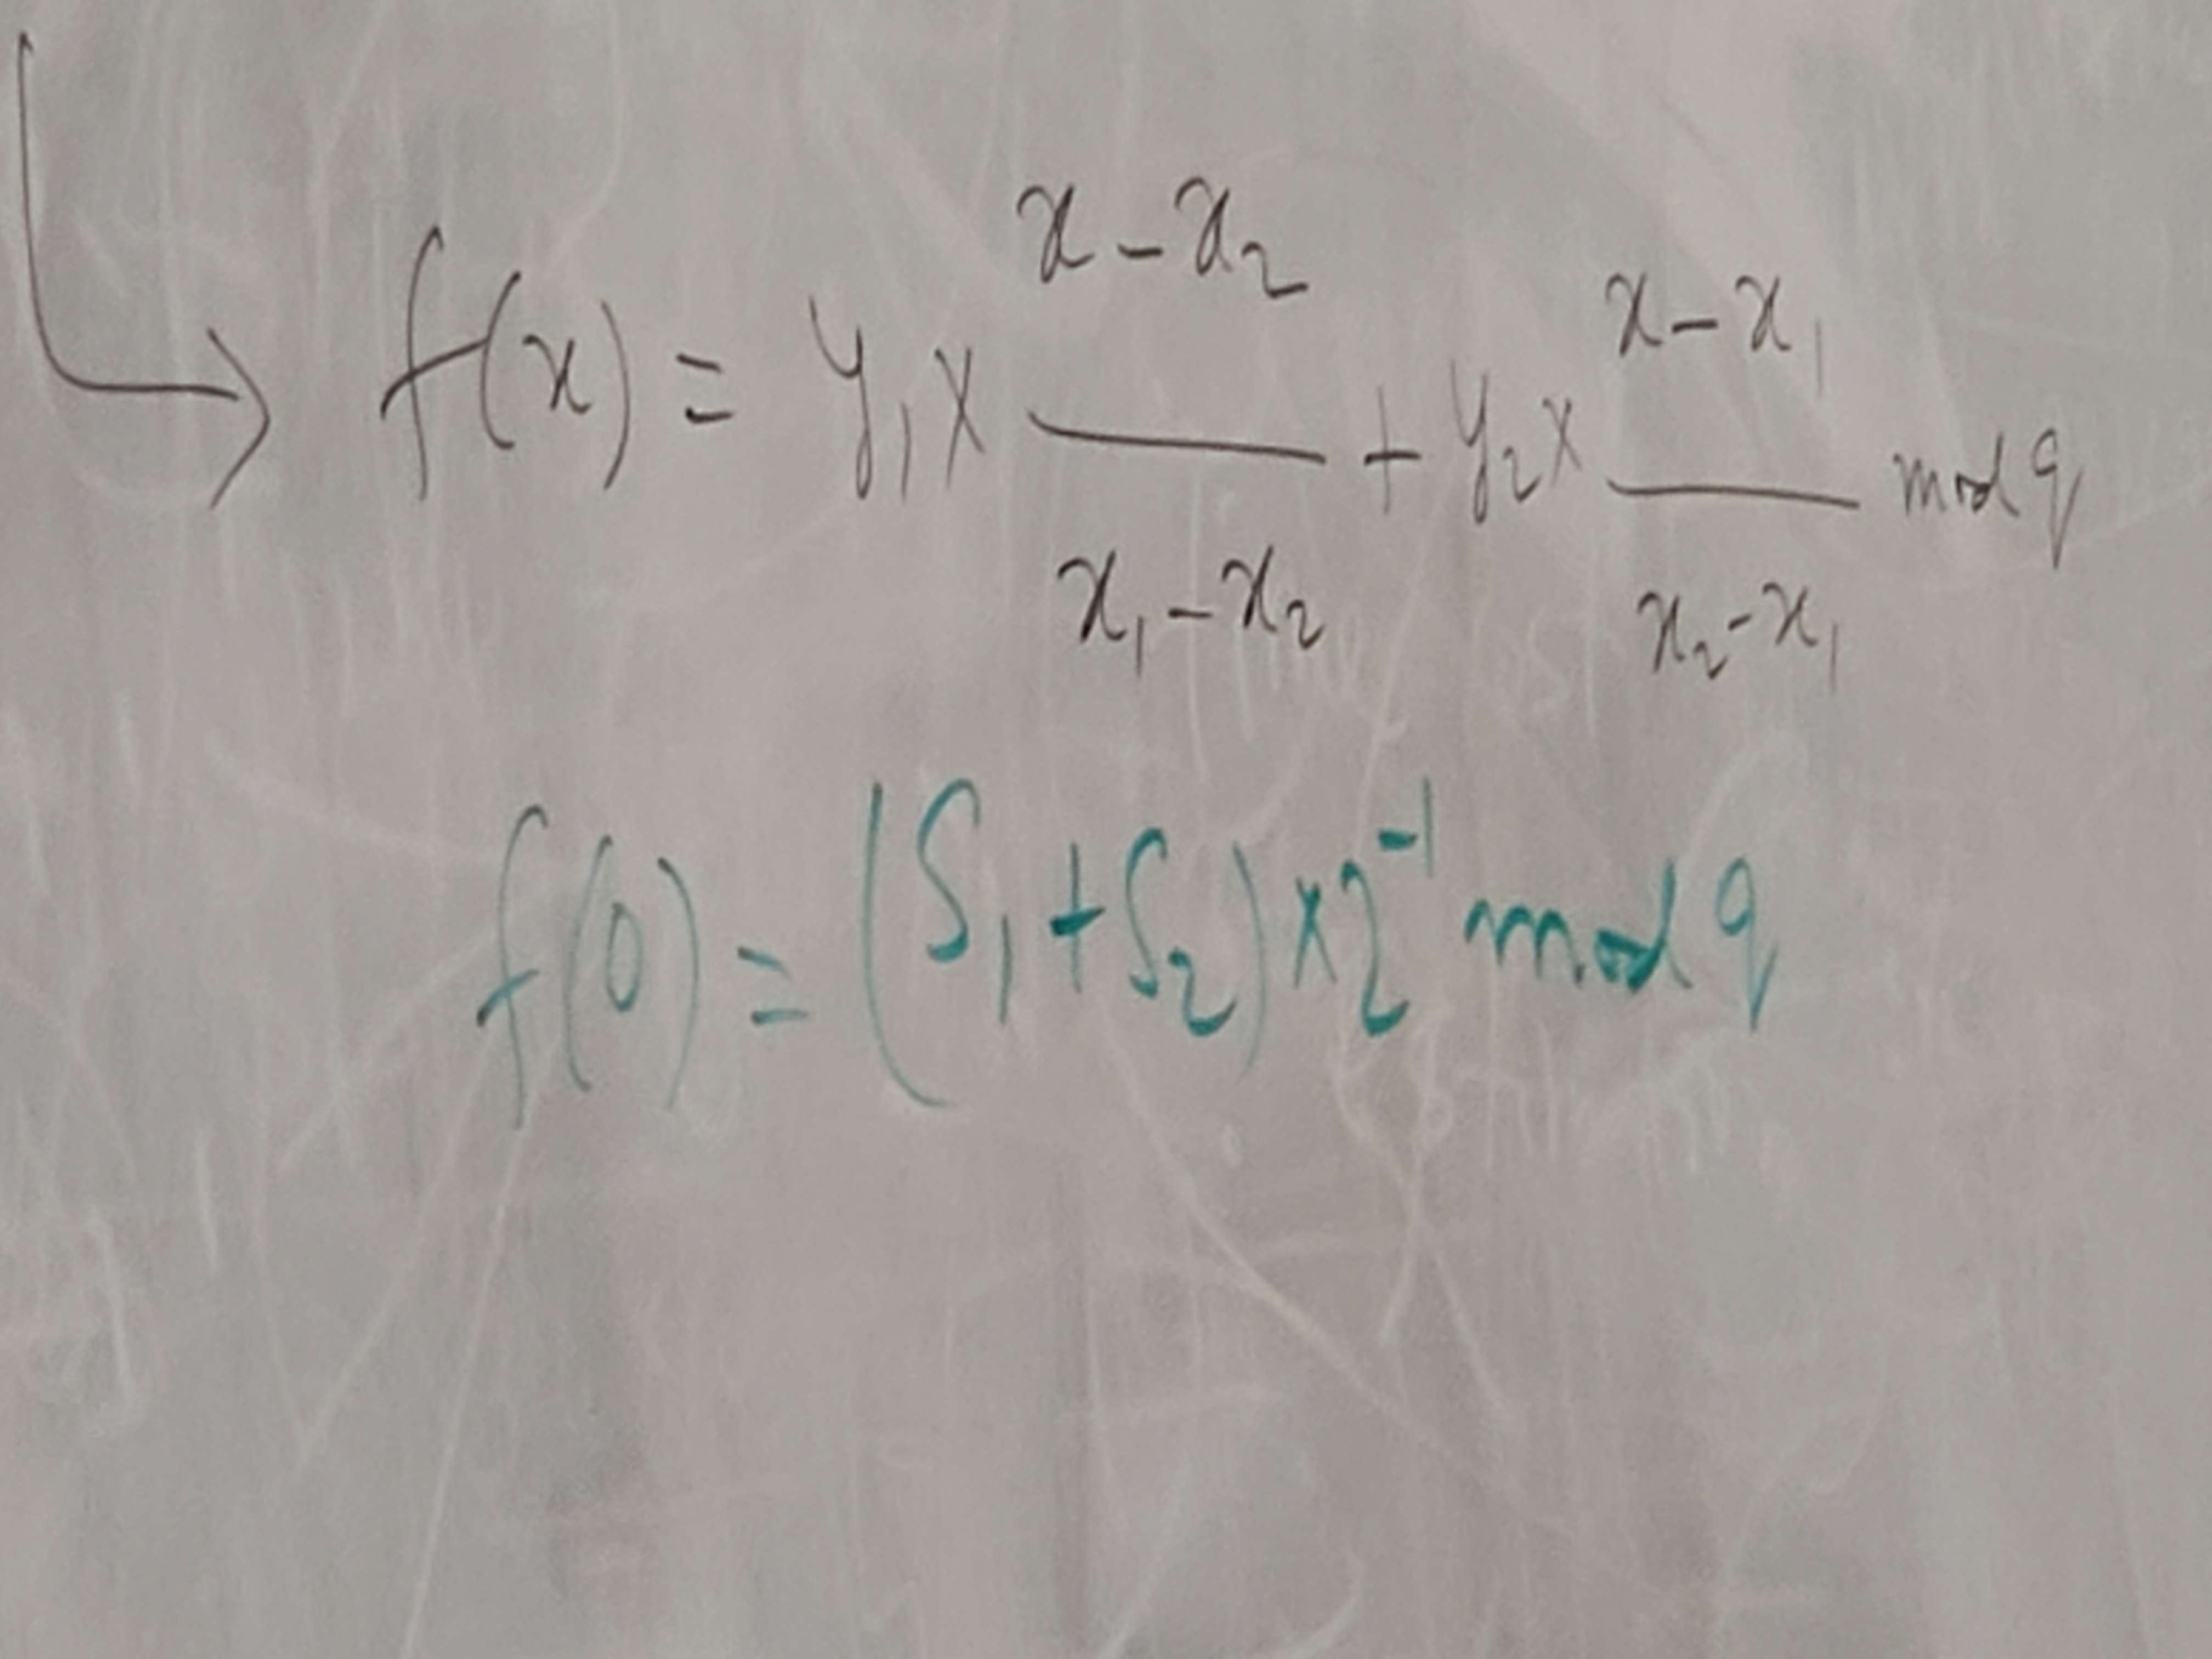 f(x) = y₁ × (x - x₂)/(x₁ - x₂) + y₂ × (x - x₁)/(x₂ - x₁) mod q
f(0) = (S₁ + S₂) × 2⁻¹ mod q